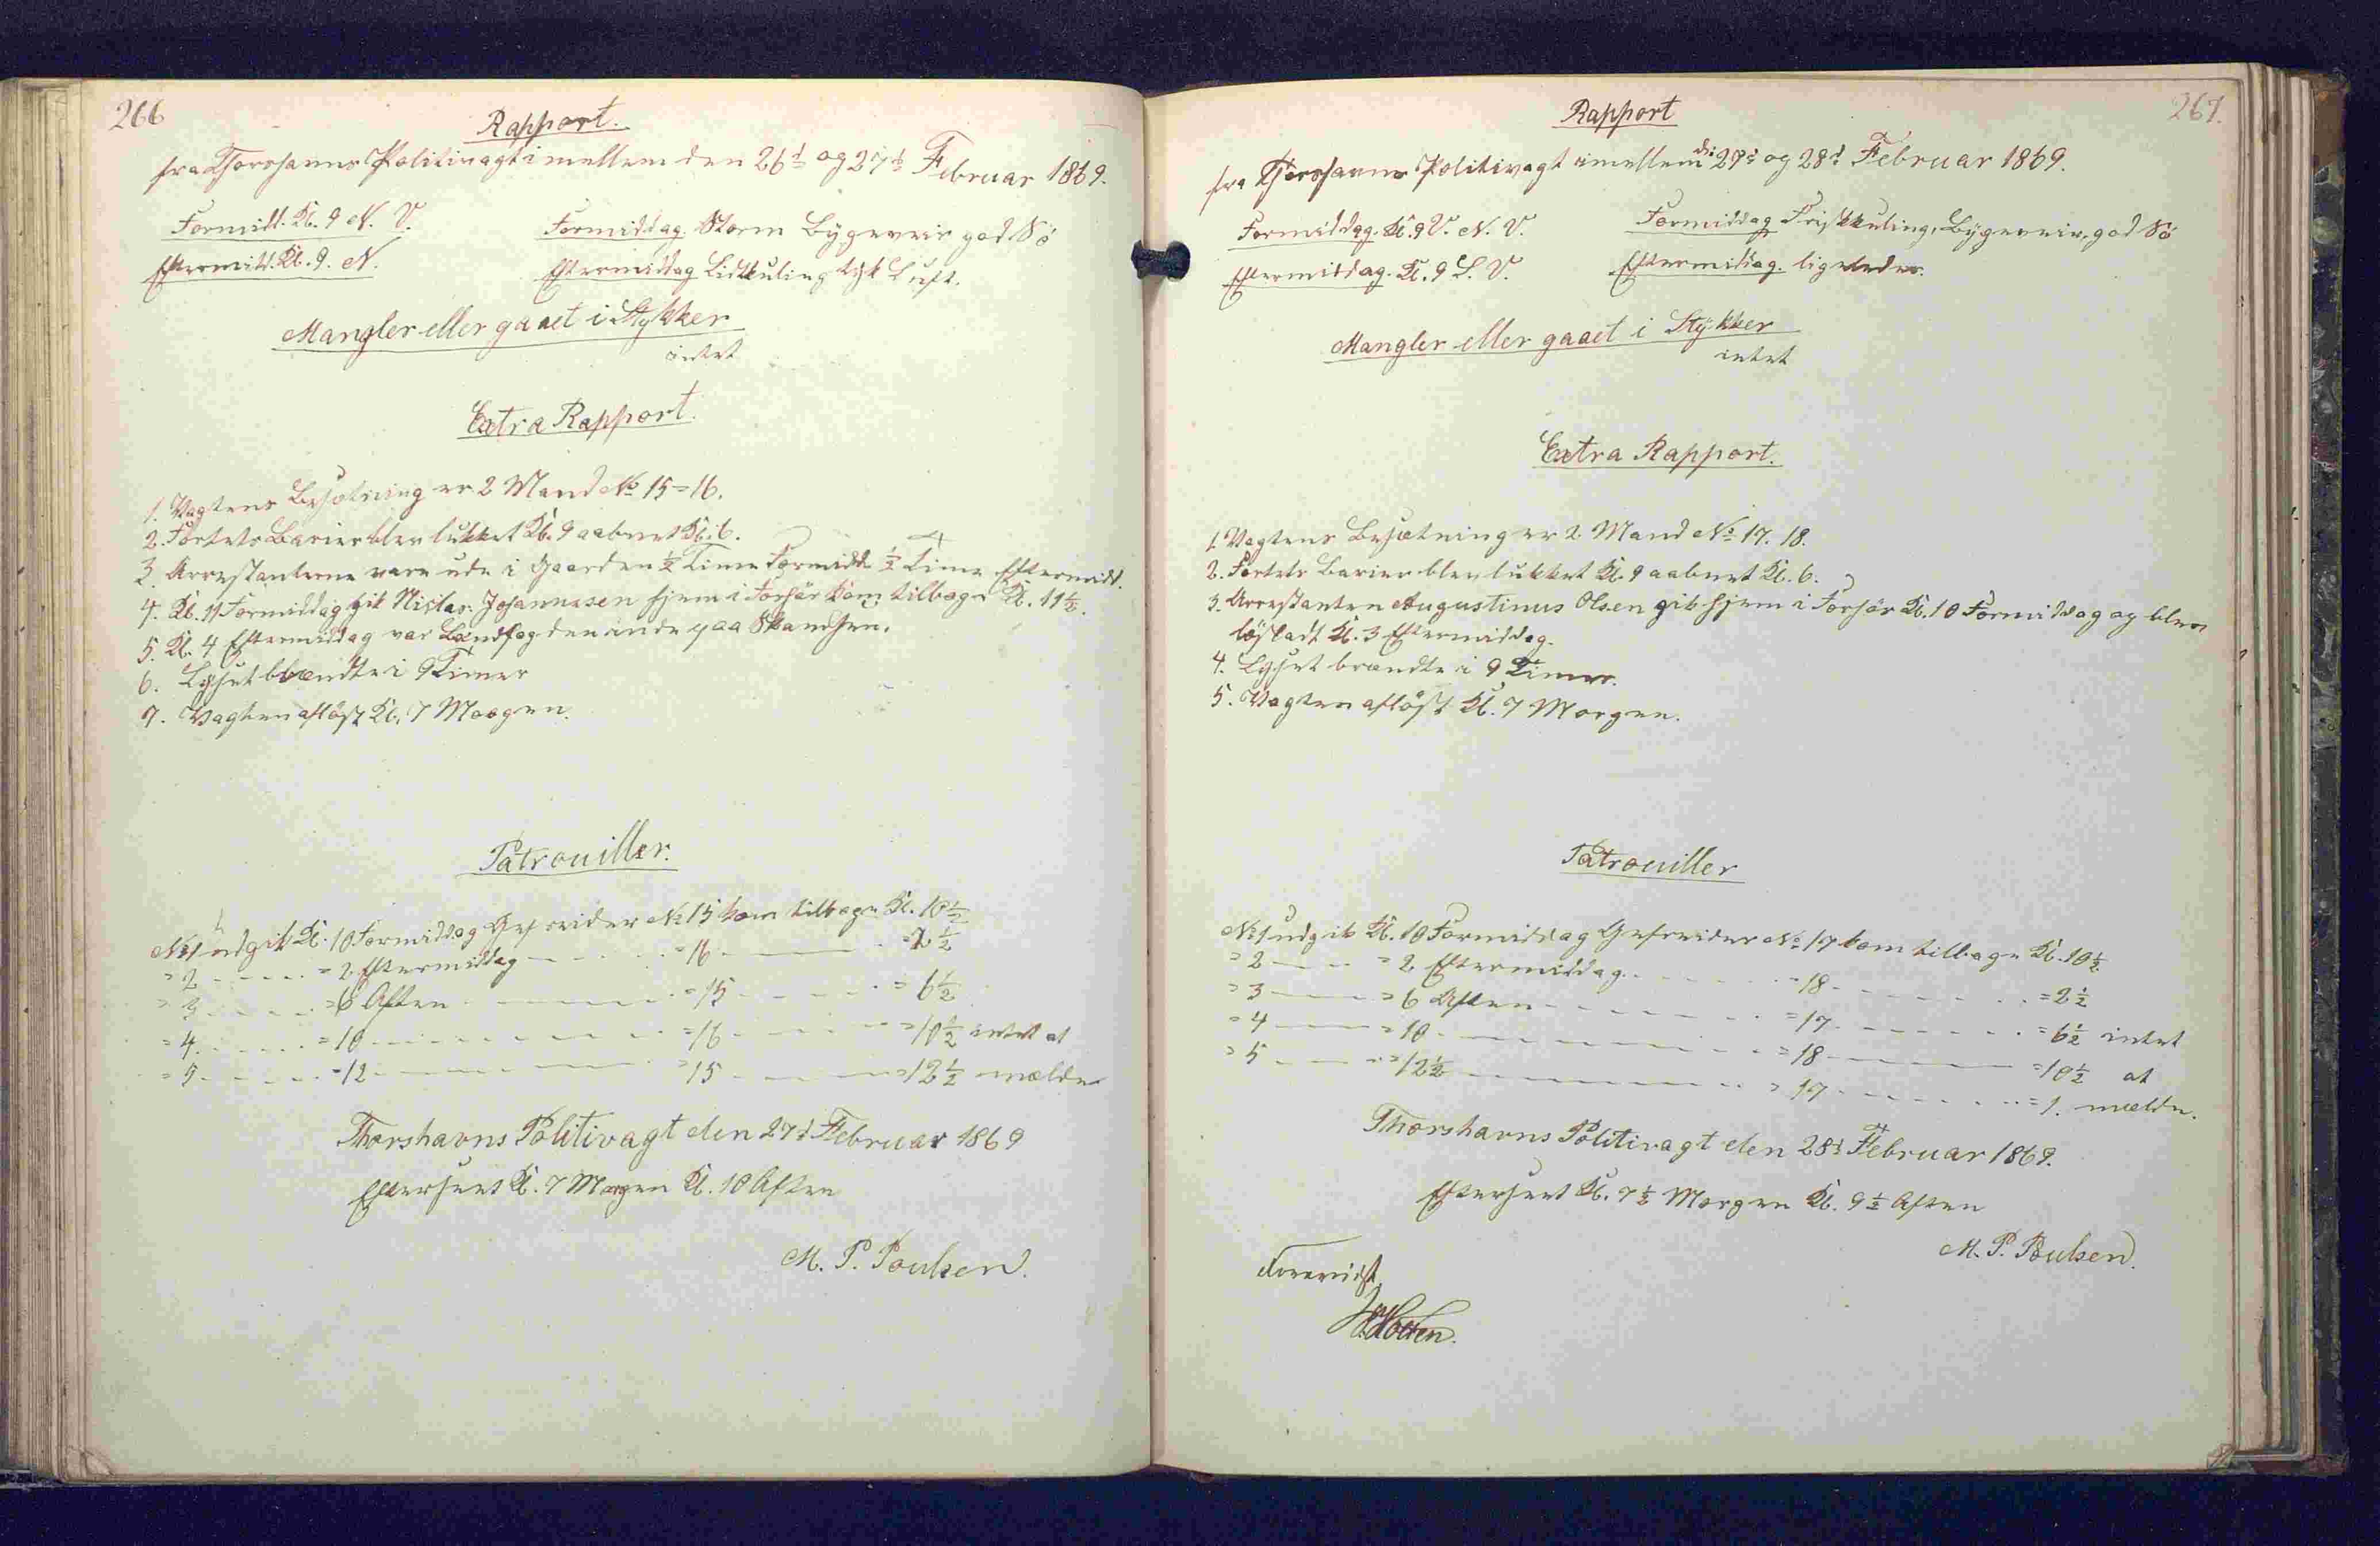 266
Rapport.
fra Thorshavns Politivagt imellem den 26d og 27d Februar 1869.
Formidd. Kl. 9 N. V.
Formiddag Storm Bygeveir god Sö
Eftermidd. Kl. 9. N.
Eftermiddag Lidtkuling tyk Luft.
Mangler eller gaaet i Stykker
intet
Extra Rapport.
1. Vagtens Besætning er 2 Mand No 15=16.
2. Fortets Barier blev lukket Kl. 9 aabnet Kl. 6.
3. Arrestanterne vare ude i Gaarden ½ Time Formidd. ½ Time Eftermidd.
4. Kl. 11 Formiddag gik Niclas Johannesen hjem i Forhör kom tilbage Kl. 11½.
5. Kl. 4 Eftermiddag var Landfogden inde paa Skandsen.
6. Lyset brændte i 9 Timer
7. Vagten aflöst Kl. 7 Morgen.
Patrouiller.
No 1 udgik Kl. 10 Formiddag Gefreider No 15 kom tilbage Kl. 10½
= 2 - - - - = 2 Eftermiddag - - - - =16 - - - - =2½
= 3 - - - - =6 Aften - - - - =15 - - - - = 6½
= 4 - - - - =10 - - - - =16 - - - - =10½ intet at
= 5 - - - - =12 - - - - =15 - - - - =12½ melde
Thorshavns Politivagt den 27d Februar 1869
Efterseet Kl. 7 Morgen Kl. 10 Aften
M. P. Poulsen.
267.
Rapport
fra Thorshavns Politivagt imellem den 27d og 28d Februar 1869.
Formiddag. Kl. 9 V. N. V.
Formiddag Friskkuling, Bygeveir, god Sö
Eftermiddag. Kl. 9 S. V.
Eftermiddag. ligeledes.
Mangler eller gaaet i Stykker
intet
Extra Rapport.
1. Vagtens Besætning er 2. Mand No 17. 18.
2. Fortets Barier blev lukket Kl. 9 aabnet Kl. 6.
3. Arrestanten Augustinus Olsen gik hjem i Forhör Kl. 10 Formiddag og blev
löSladt Kl. 3 Eftermiddag.
4. Lyset brændte i 9 Timer.
5. Vagten aflöst Kl. 7 Morgen.
Patrouiller
No 1 udgik Kl. 10 Formiddag Gefreider No 17 kom tilbage Kl. 10½
= 2 - - - - = 2 Eftermiddag - - - - =18 - - - - =2½
= 3 - - - - = 6 Aften - - - - =17 - - - - =6½ intet
= 4 - - - - =10 - - - - =18 - - - - =10½ at
= 5 - - - - =12½ - - - - = 17 - - - - =1. melde.
Thorshavns Politivagt den 28d Februar 1869.
Efterseet Kl. 7½ Morgen Kl. 9½ Aften
M. P. Poulsen.
Forevist
Holten.